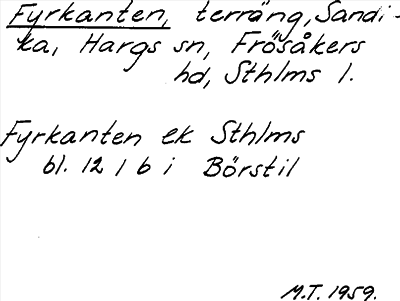 Fyrkanten, terräng, Sandi-
ka, Hargs sn, Frösåkers
hd, Sthlms l.
Fyrkanten ek Sthlms
bl. 12 1 b i Börstil
M.T. 1959.